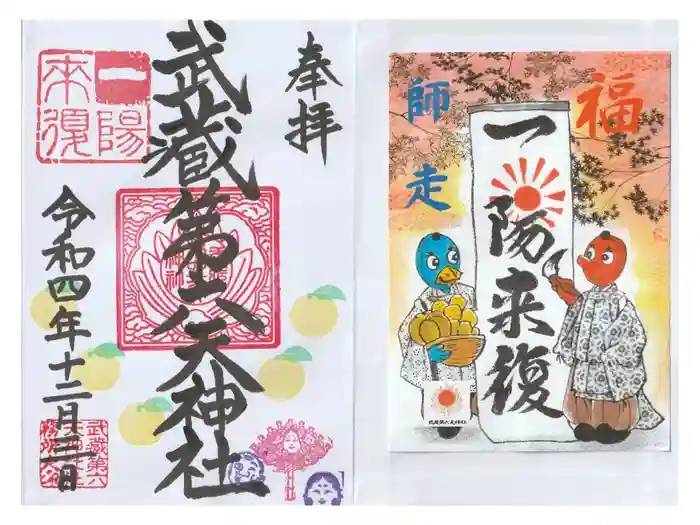 奉拝
武蔵第六天神社
一陽
来復
令和四年十二月三日
武蔵第六
福
師走
一陽来復
武蔵第六天神社